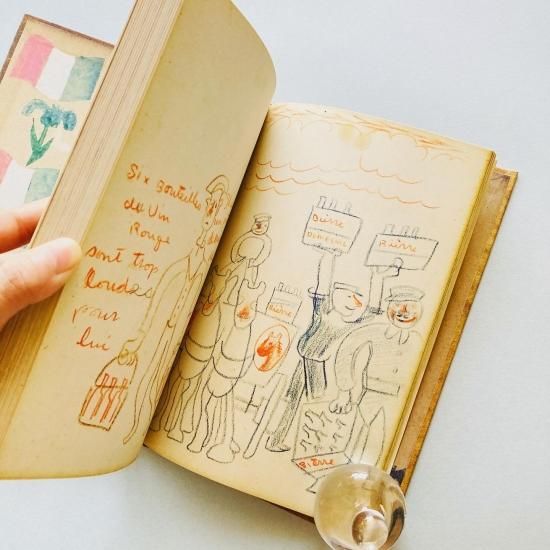 Six Bouteilles
de Vin
Rouge
sont trop
lourdes
pour
lui
Bière
Bière
Bière
Bière